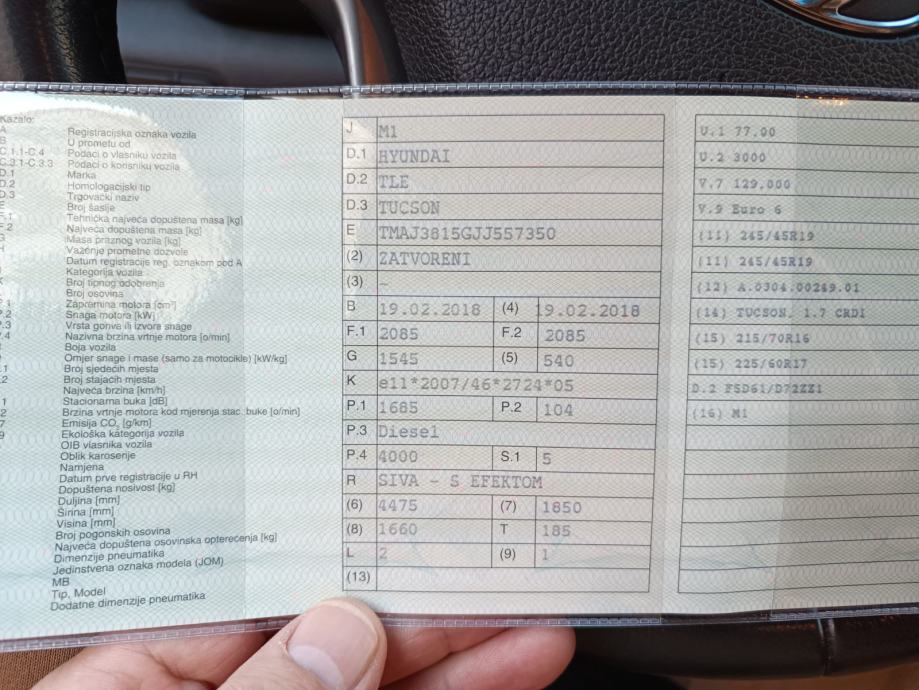 Kazalo:
A Registracijska oznaka vozila
B U prometu od
C.1.1-C.4 Podaci o vlasniku vozila
C.3.1-C.3.3 Podaci o korisniku vozila
D.1 Marka
D.2 Homologacijski tip
D.3 Trgovački naziv
E Broj šasije
F.1 Tehnička najveća dopuštena masa [kg]
F.2 Najveća dopuštena masa [kg]
G Masa praznog vozila [kg]
H Važenje prometne dozvole
Datum registracije reg. oznakom pod A
Kategorija vozila
Broj tipnog odobrenja
Broj osovina
Zapremina motora [cm³]
P.2 Snaga motora [kW]
P.3 Vrsta goriva ili izvora snage
P.4 Nazivna brzina vrtnje motora [o/min]
Boja vozila
Omjer snage i mase (samo za motocikle) [kW/kg]
.1 Broj sjedećih mjesta
.2 Broj stajaćih mjesta
Najveća brzina [km/h]
.1 Stacionarna buka [dB]
.2 Brzina vrtnje motora kod mjerenja stac. buke [o/min]
7 Emisija CO₂ [g/km]
9 Ekološka kategorija vozila
OIB vlasnika vozila
Oblik karoserije
Namjena
Datum prve registracije u RH
Dopuštena nosivost [kg]
Duljina [mm]
Širina [mm]
Visina [mm]
Broj pogonskih osovina
Najveća dopuštena osovinska opterećenja [kg]
Dimenzije pneumatika
Jedinstvena oznaka modela (JOM)
MB
Tip, Model
Dodatne dimenzije pneumatika
J M1
D.1 HYUNDAI
D.2 TLE
D.3 TUCSON
E TMAJ3815GJJ557350
(2) ZATVORENI
(3) –
B 19.02.2018 (4) 19.02.2018
F.1 2085 F.2 2085
G 1545 (5) 540
K e11*2007/46*2724*05
P.1 1685 P.2 104
P.3 Diesel
P.4 4000 S.1 5
R SIVA - S EFEKTOM
(6) 4475 (7) 1850
(8) 1660 T 185
L 2 (9) 1
(13)
U.1 77.00
U.2 3000
V.7 129.000
V.9 Euro 6
(11) 245/45R19
(11) 245/45R19
(12) A.0304.00269.01
(14) TUCSON, 1.7 CRDI
(15) 215/70R16
(15) 225/60R17
D.2 F5D61/D72ZZ1
(16) M1